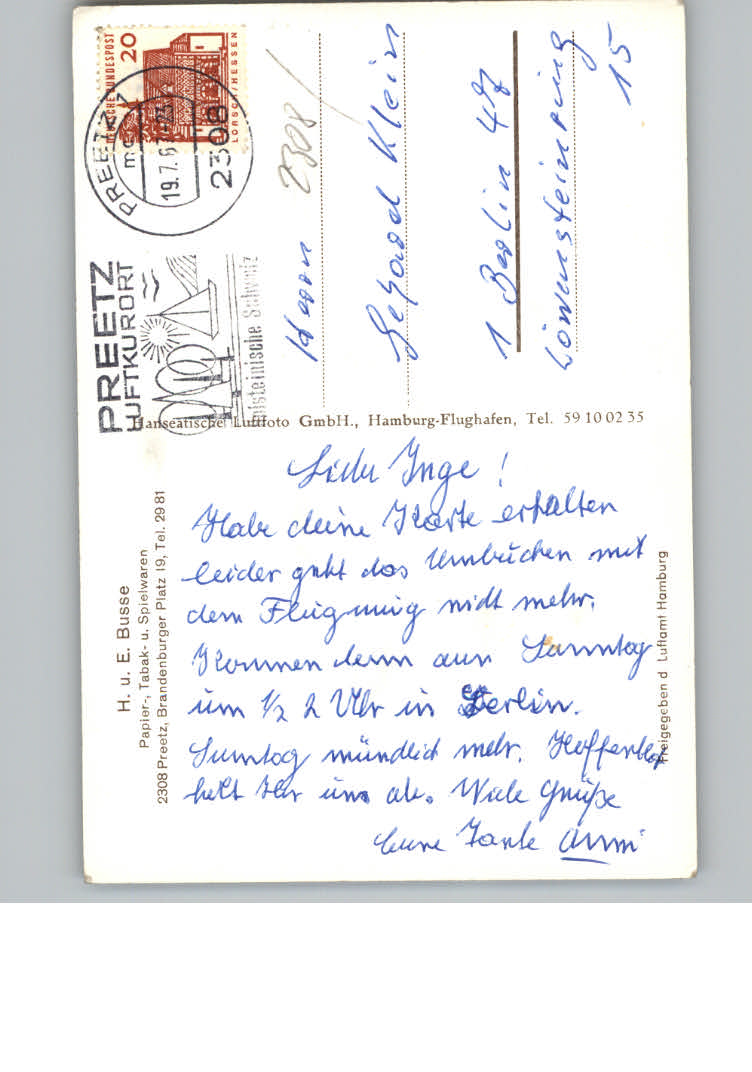 DEUTSCHE BUNDESPOST
20
LORSCH/HESSEN
PREETZ
19.7.67
2308
PREETZ
LUFTKURORT
Holsteinische Schweiz
2308
Herrn
Gerhard Klein
1 Berlin 47
Löwensteinring
15
Hanseatische Luftfoto GmbH., Hamburg-Flughafen, Tel. 59 10 02 35
H. u. E. Busse
Papier-, Tabak- u. Spielwaren
2308 Preetz, Brandenburger Platz 19, Tel. 29 81
Liebe Inge!
Habe deine Karte erhalten
leider geht das Umbuchen mit
dem Flug nicht mehr.
Kommen denn am Sonntag
um 1/2 2 Uhr in Berlin.
Sonntag mündlich mehr. Hoffentlich
holt Ihr uns ab. Viele Grüße
Eure Tante Anni
Freigegeben d Luftamt Hamburg